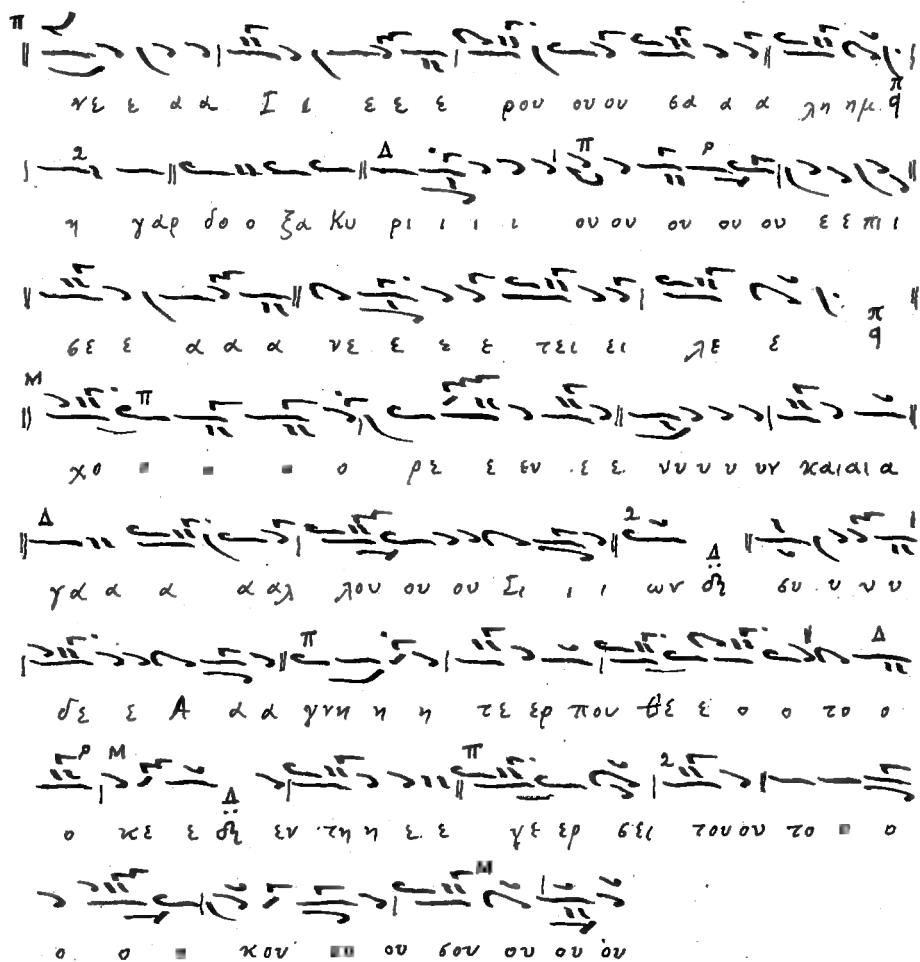 νε ε α α Ι ε ε ε ε ρου ου ου σα α α λη ημ
η γαρ δο ο ξα Κυ ρι ι ι ι ου ου ου ου ου ε ε πι ι
σε ε α α α νε ε ε ε τει ει λε ε
χο ο ρε ε ευ ε ε νυ υ υ υν και αι α
γα α α α αλ λου ου ου Σι ι ι ων συ υ υ υ
δε ε Α α α γνη η η τε ερ που Θε ε ο ο το ο
ο κε ε εν τη η ε ε γε ερ σει του ου το ο
ο ο κου ου σου ου ου ου